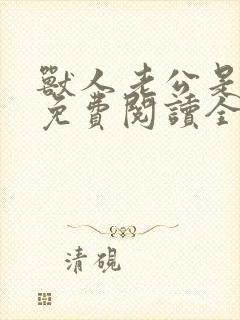 獸人老公是
免費閱讀全
清硯